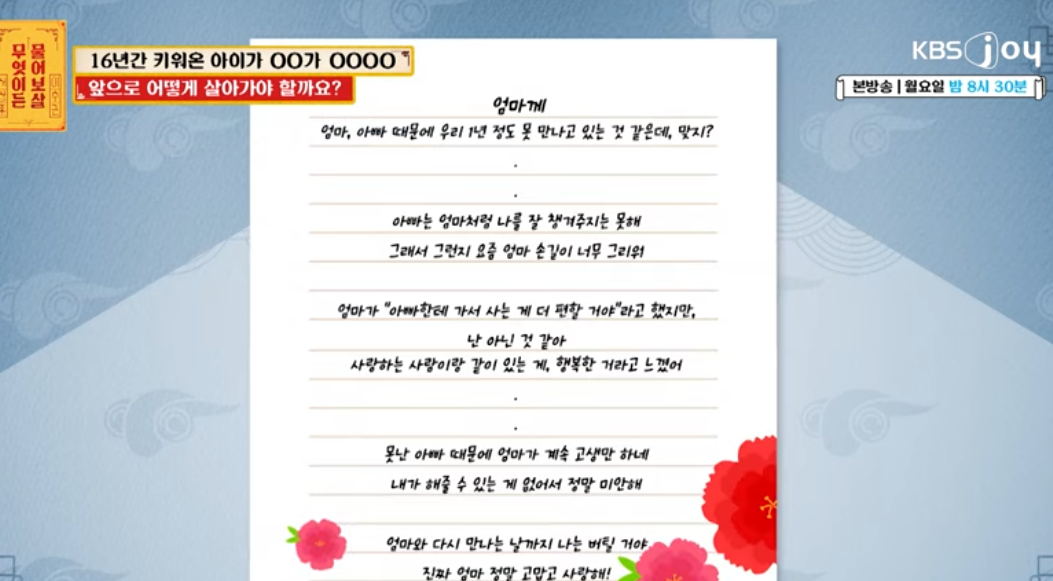 무엇이든
물어보살
16년간 키워온 아이가 OO가 OOOO
앞으로 어떻게 살아가야 할까요?
KBS joy
본방송 | 월요일 밤 8시 30분
엄마께
엄마, 아빠 때문에 우리 1년 정도 못 만나고 있는 것 같은데, 맞지?
.
.
아빠는 엄마처럼 나를 잘 챙겨주지는 못해
그래서 그런지 요즘 엄마 손길이 너무 그리워
엄마가 "아빠한테 가서 사는 게 더 편할 거야"라고 했지만,
난 아닌 것 같아
사랑하는 사람이랑 같이 있는 게, 행복한 거라고 느꼈어
.
.
못난 아빠 때문에 엄마가 계속 고생만 하네
내가 해줄 수 있는 게 없어서 정말 미안해
엄마와 다시 만나는 날까지 나는 버틸 거야
진짜 엄마 정말 고맙고 사랑해!